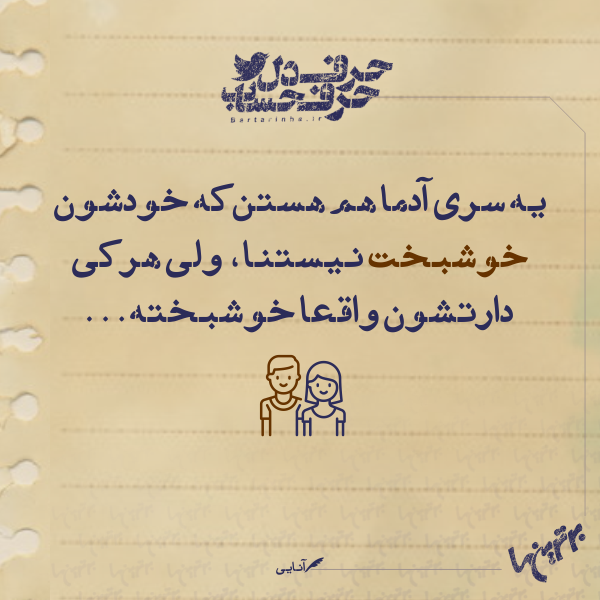 حرف دل
حرف حساب
Bartarinha.ir
یه سری آدما هم هستن که خودشون
خوشبخت نیستنا، ولی هر کی
دارتشون واقعا خوشبخته...
آنایی
برترین‌ها